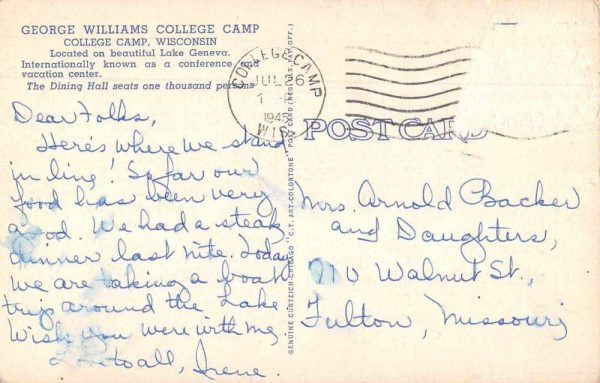 GEORGE WILLIAMS COLLEGE CAMP
COLLEGE CAMP, WISCONSIN
Located on beautiful Lake Geneva.
Internationally known as a conference and
vacation center.
The Dining Hall seats one thousand persons
Dear Folks,
Here's where we stand
in line! So far our
food has been very
good. We had a steak
dinner last nite. Today
we are taking a boat
trip around the Lake
Wish you were with me
to all, Irene.
COLLEGE CAMP
JUL 26
1
1945
WIS.
POST CARD
Mrs. Arnold Backer
and Daughters,
710 Walnut St.,
Fulton, Missouri
GENUINE CURTEICH-CHICAGO "C.T. ART-COLORTONE" POST CARD (REG. U.S. PAT. OFF.)